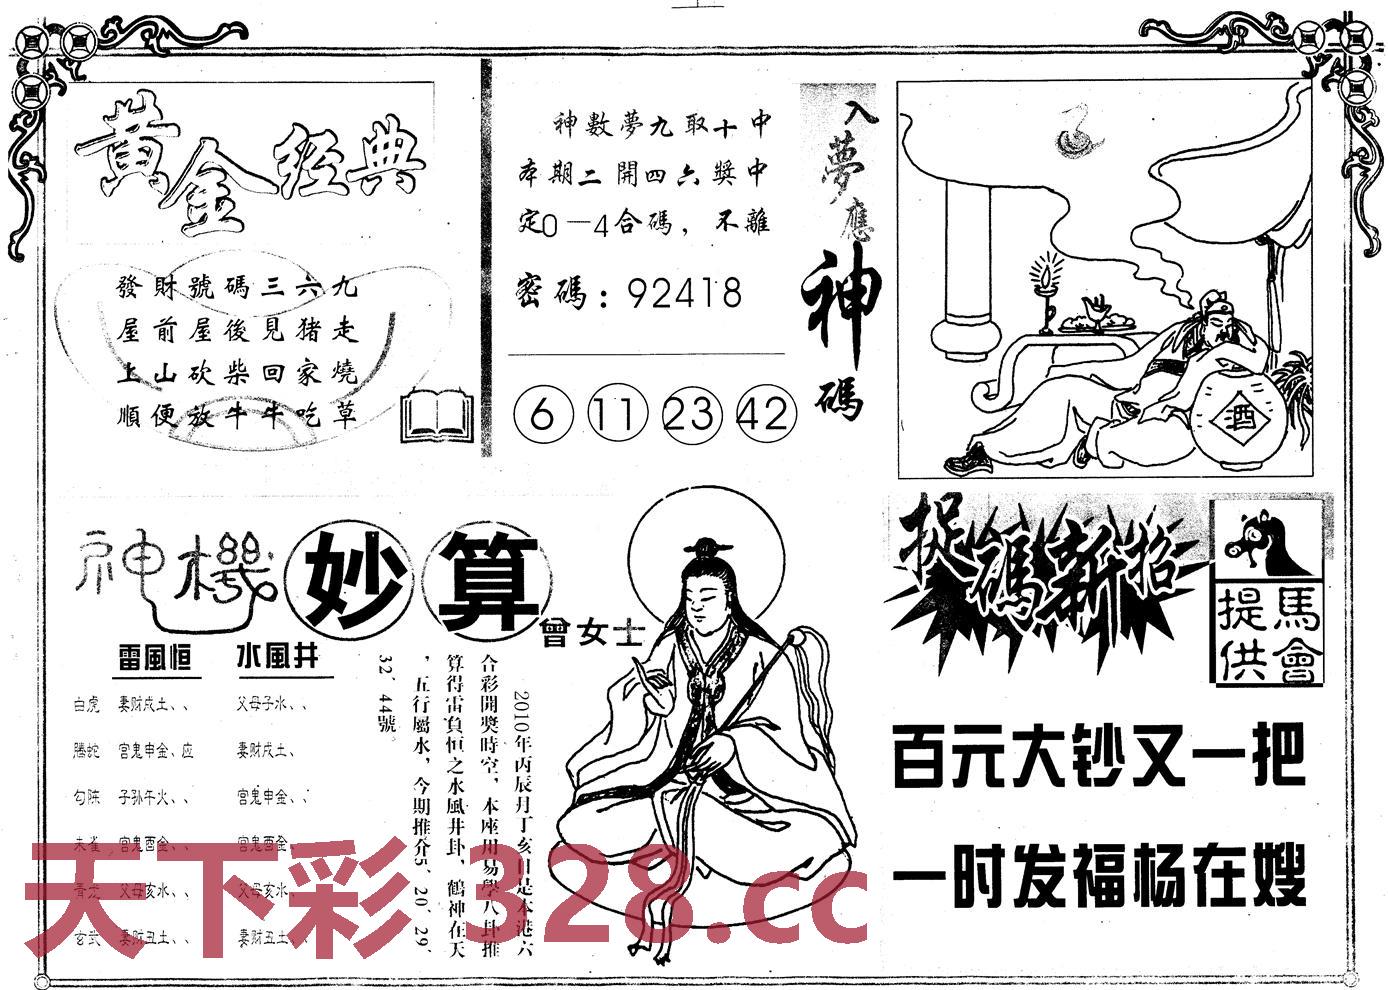 黃金經典
發財號碼三六九
屋前屋後見猪走
上山砍柴回家燒
順便放牛牛吃草
神數夢九取十中
本期二開四六獎中
定0一4合碼，不離
密碼：92418
6 11 23 42
入夢應神碼
酒
神機妙算
曾女士
雷風恒 水風井
白虎 妻财戌土、、 父母子水、、
騰蛇 官鬼申金、应 妻财戌土、
勾陈 子孙午火、、 官鬼申金、、
朱雀 官鬼酉金、 官鬼酉金、
青龙 父母亥水、 父母亥水、
玄武 妻财丑土、、 妻财丑土、
2010年丙辰月丁亥日是本港六
合彩開獎時空，本座用易學八卦推
算得雷負恒之水風井卦，鶴神在天
，五行屬水，今期推介5、20、29、
32、44號。
捉碼新招
馬會提供
百元大钞又一把
一时发福杨在嫂
天下彩.328.cc